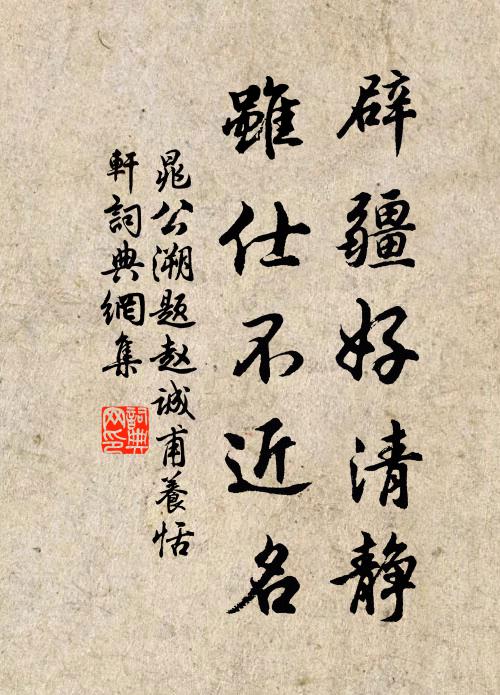 辟疆好清静
雖仕不近名
晁公溯题赵诚甫養恬
軒詞典網集
詞典网印